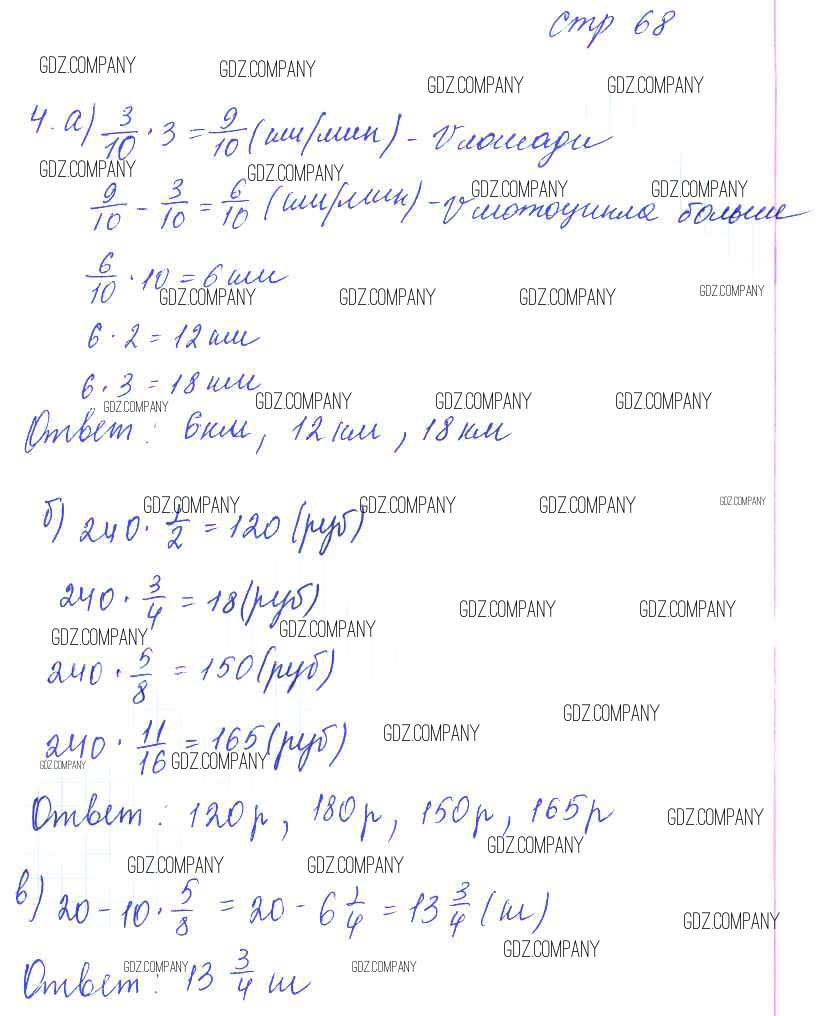 стр 68
GDZ.COMPANY GDZ.COMPANY GDZ.COMPANY GDZ.COMPANY
4. а) 3/10 · 3 = 9/10 (км/мин) - V лошади
GDZ.COMPANY GDZ.COMPANY GDZ.COMPANY GDZ.COMPANY
9/10 - 3/10 = 6/10 (км/мин) - V мотоцикла больше
6/10 · 10 = 6 км
GDZ.COMPANY GDZ.COMPANY GDZ.COMPANY GDZ.COMPANY
6 · 2 = 12 км
6 · 3 = 18 км
GDZ.COMPANY GDZ.COMPANY GDZ.COMPANY GDZ.COMPANY
Ответ: 6 км, 12 км, 18 км
GDZ.COMPANY GDZ.COMPANY GDZ.COMPANY GDZ.COMPANY
б) 240 · 1/2 = 120 (руб)
240 · 3/4 = 18 (руб)
GDZ.COMPANY GDZ.COMPANY GDZ.COMPANY GDZ.COMPANY
240 · 5/8 = 150 (руб)
GDZ.COMPANY
240 · 11/16 = 165 (руб)
GDZ.COMPANY GDZ.COMPANY GDZ.COMPANY
Ответ: 120 р, 180 р, 150 р, 165 р
GDZ.COMPANY GDZ.COMPANY
GDZ.COMPANY GDZ.COMPANY
в) 20 - 10 · 5/8 = 20 - 6 1/4 = 13 3/4 (м)
GDZ.COMPANY GDZ.COMPANY
Ответ: 13 3/4 м
GDZ.COMPANY GDZ.COMPANY